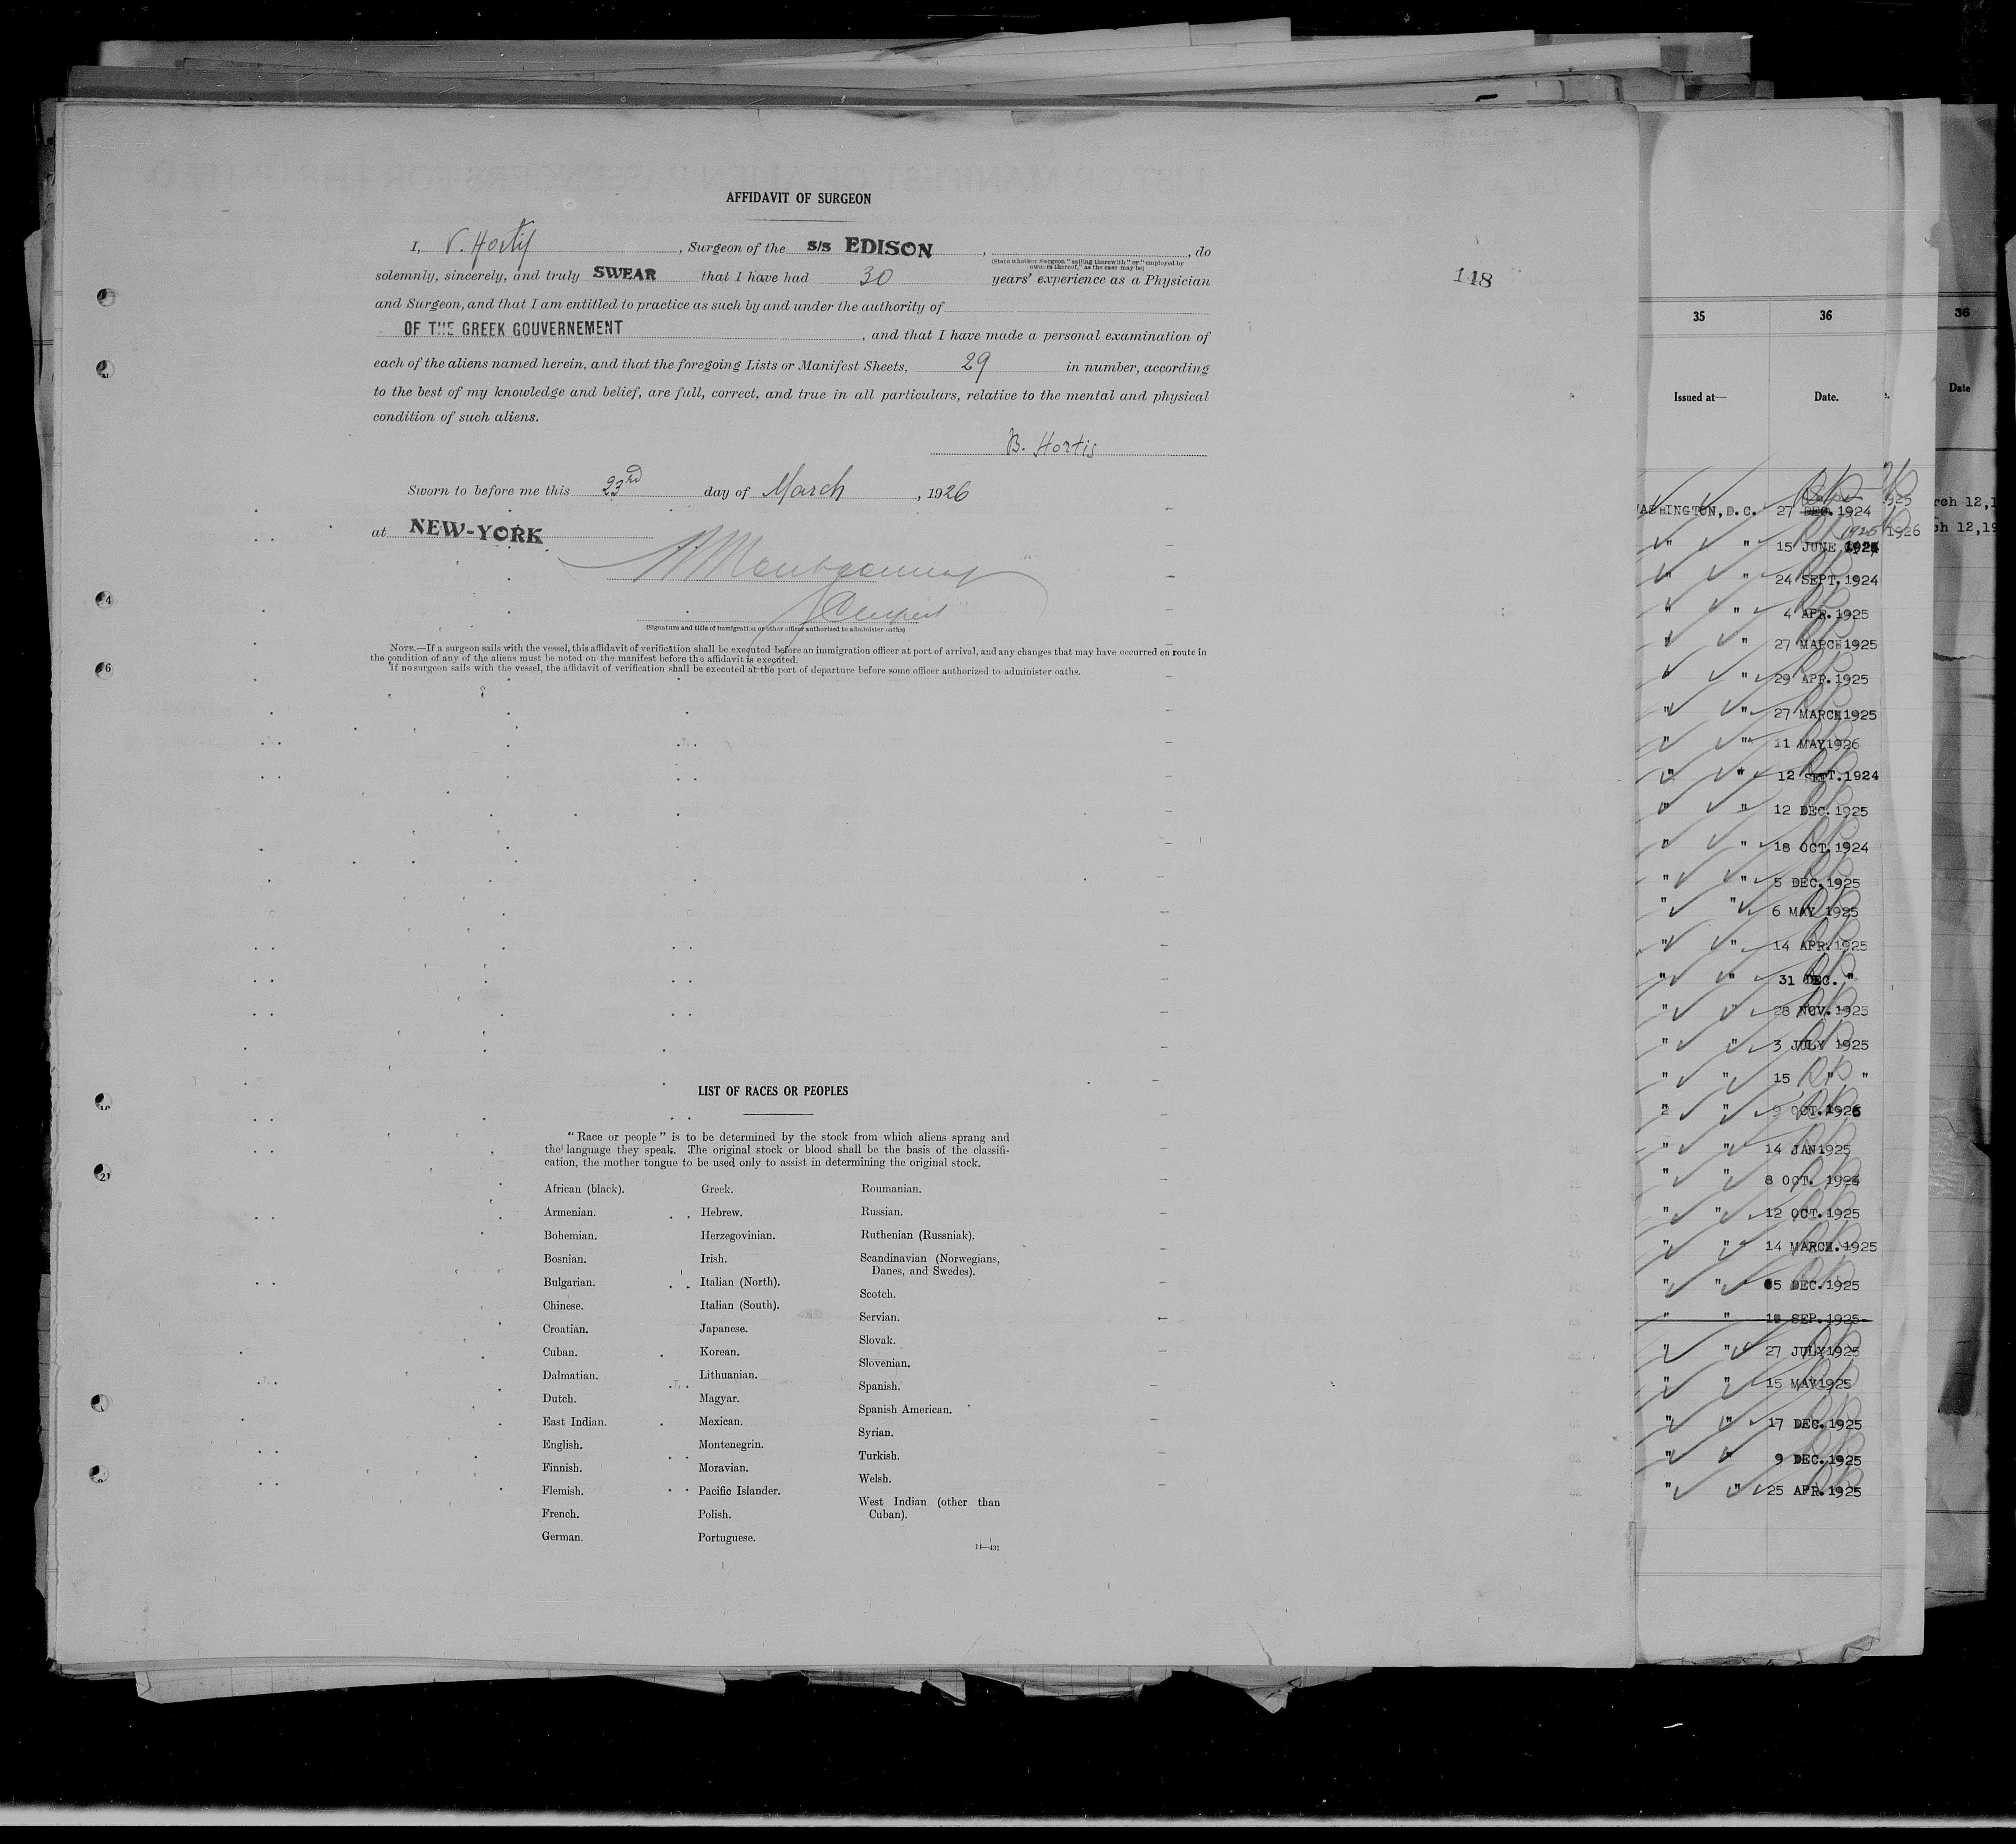 AFFIDAVIT OF SURGEON
I, V. Hortis, Surgeon of the S/S EDISON, , do
(State whether Surgeon "sailing therewith" or "employed by
owners thereof," as the case may be)
solemnly, sincerely, and truly SWEAR that I have had 30 years' experience as a Physician
and Surgeon, and that I am entitled to practice as such by and under the authority of
OF THE GREEK GOUVERNEMENT, and that I have made a personal examination of
each of the aliens named herein, and that the foregoing Lists or Manifest Sheets, 29 in number, according
to the best of my knowledge and belief, are full, correct, and true in all particulars, relative to the mental and physical
condition of such aliens.
B. Hortis
Sworn to before me this 23rd day of March, 1926
at NEW-YORK
(Signature and title of immigration or other officer authorized to administer oaths)
NOTE.—If a surgeon sails with the vessel, this affidavit of verification shall be executed before an immigration officer at port of arrival, and any changes that may have occurred en route in
the condition of any of the aliens must be noted on the manifest before the affidavit is executed.
If no surgeon sails with the vessel, the affidavit of verification shall be executed at the port of departure before some officer authorized to administer oaths.
148
LIST OF RACES OR PEOPLES
"Race or people" is to be determined by the stock from which aliens sprang and
the language they speak. The original stock or blood shall be the basis of the classifi-
cation, the mother tongue to be used only to assist in determining the original stock.
African (black).
Armenian.
Bohemian.
Bosnian.
Bulgarian.
Chinese.
Croatian.
Cuban.
Dalmatian.
Dutch.
East Indian.
English.
Finnish.
Flemish.
French.
German.
Greek.
Hebrew.
Herzegovinian.
Irish.
Italian (North).
Italian (South).
Japanese.
Korean.
Lithuanian.
Magyar.
Mexican.
Montenegrin.
Moravian.
Pacific Islander.
Polish.
Portuguese.
Roumanian.
Russian.
Ruthenian (Russniak).
Scandinavian (Norwegians,
Danes, and Swedes).
Scotch.
Servian.
Slovak.
Slovenian.
Spanish.
Spanish American.
Syrian.
Turkish.
Welsh.
West Indian (other than
Cuban).
14—431
35 36
Issued at— Date.
WASHINGTON, D.C. 27 DEC. 1924
" " 15 JUNE
" " 24 SEPT. 1924
" " 4 APR. 1925
" " 27 MARCH 1925
" " 29 APR. 1925
" " 27 MARCH 1925
" " 11 MAY 1926
" " 12 SEPT. 1924
" " 12 DEC. 1925
" " 18 OCT. 1924
" " 5 DEC. 1925
" " 6 MAY 1925
" " 14 APR. 1925
" " 31 DEC. "
" " 28 NOV. 1925
" " 3 JULY 1925
" " 15 " "
" " 9 OCT.
" " 14 JAN 1925
" " 8 OCT. 1924
" " 12 OCT. 1925
" " 14 MARCH. 1925
" " 5 DEC. 1925
" " SEP. 1925
" " 27 JULY 1925
" " 15 MAY 1925
" " 17 DEC. 1925
" " 9 DEC. 1925
" " 25 APR. 1925
36
Date
rch 12, 1
ch 12, 19